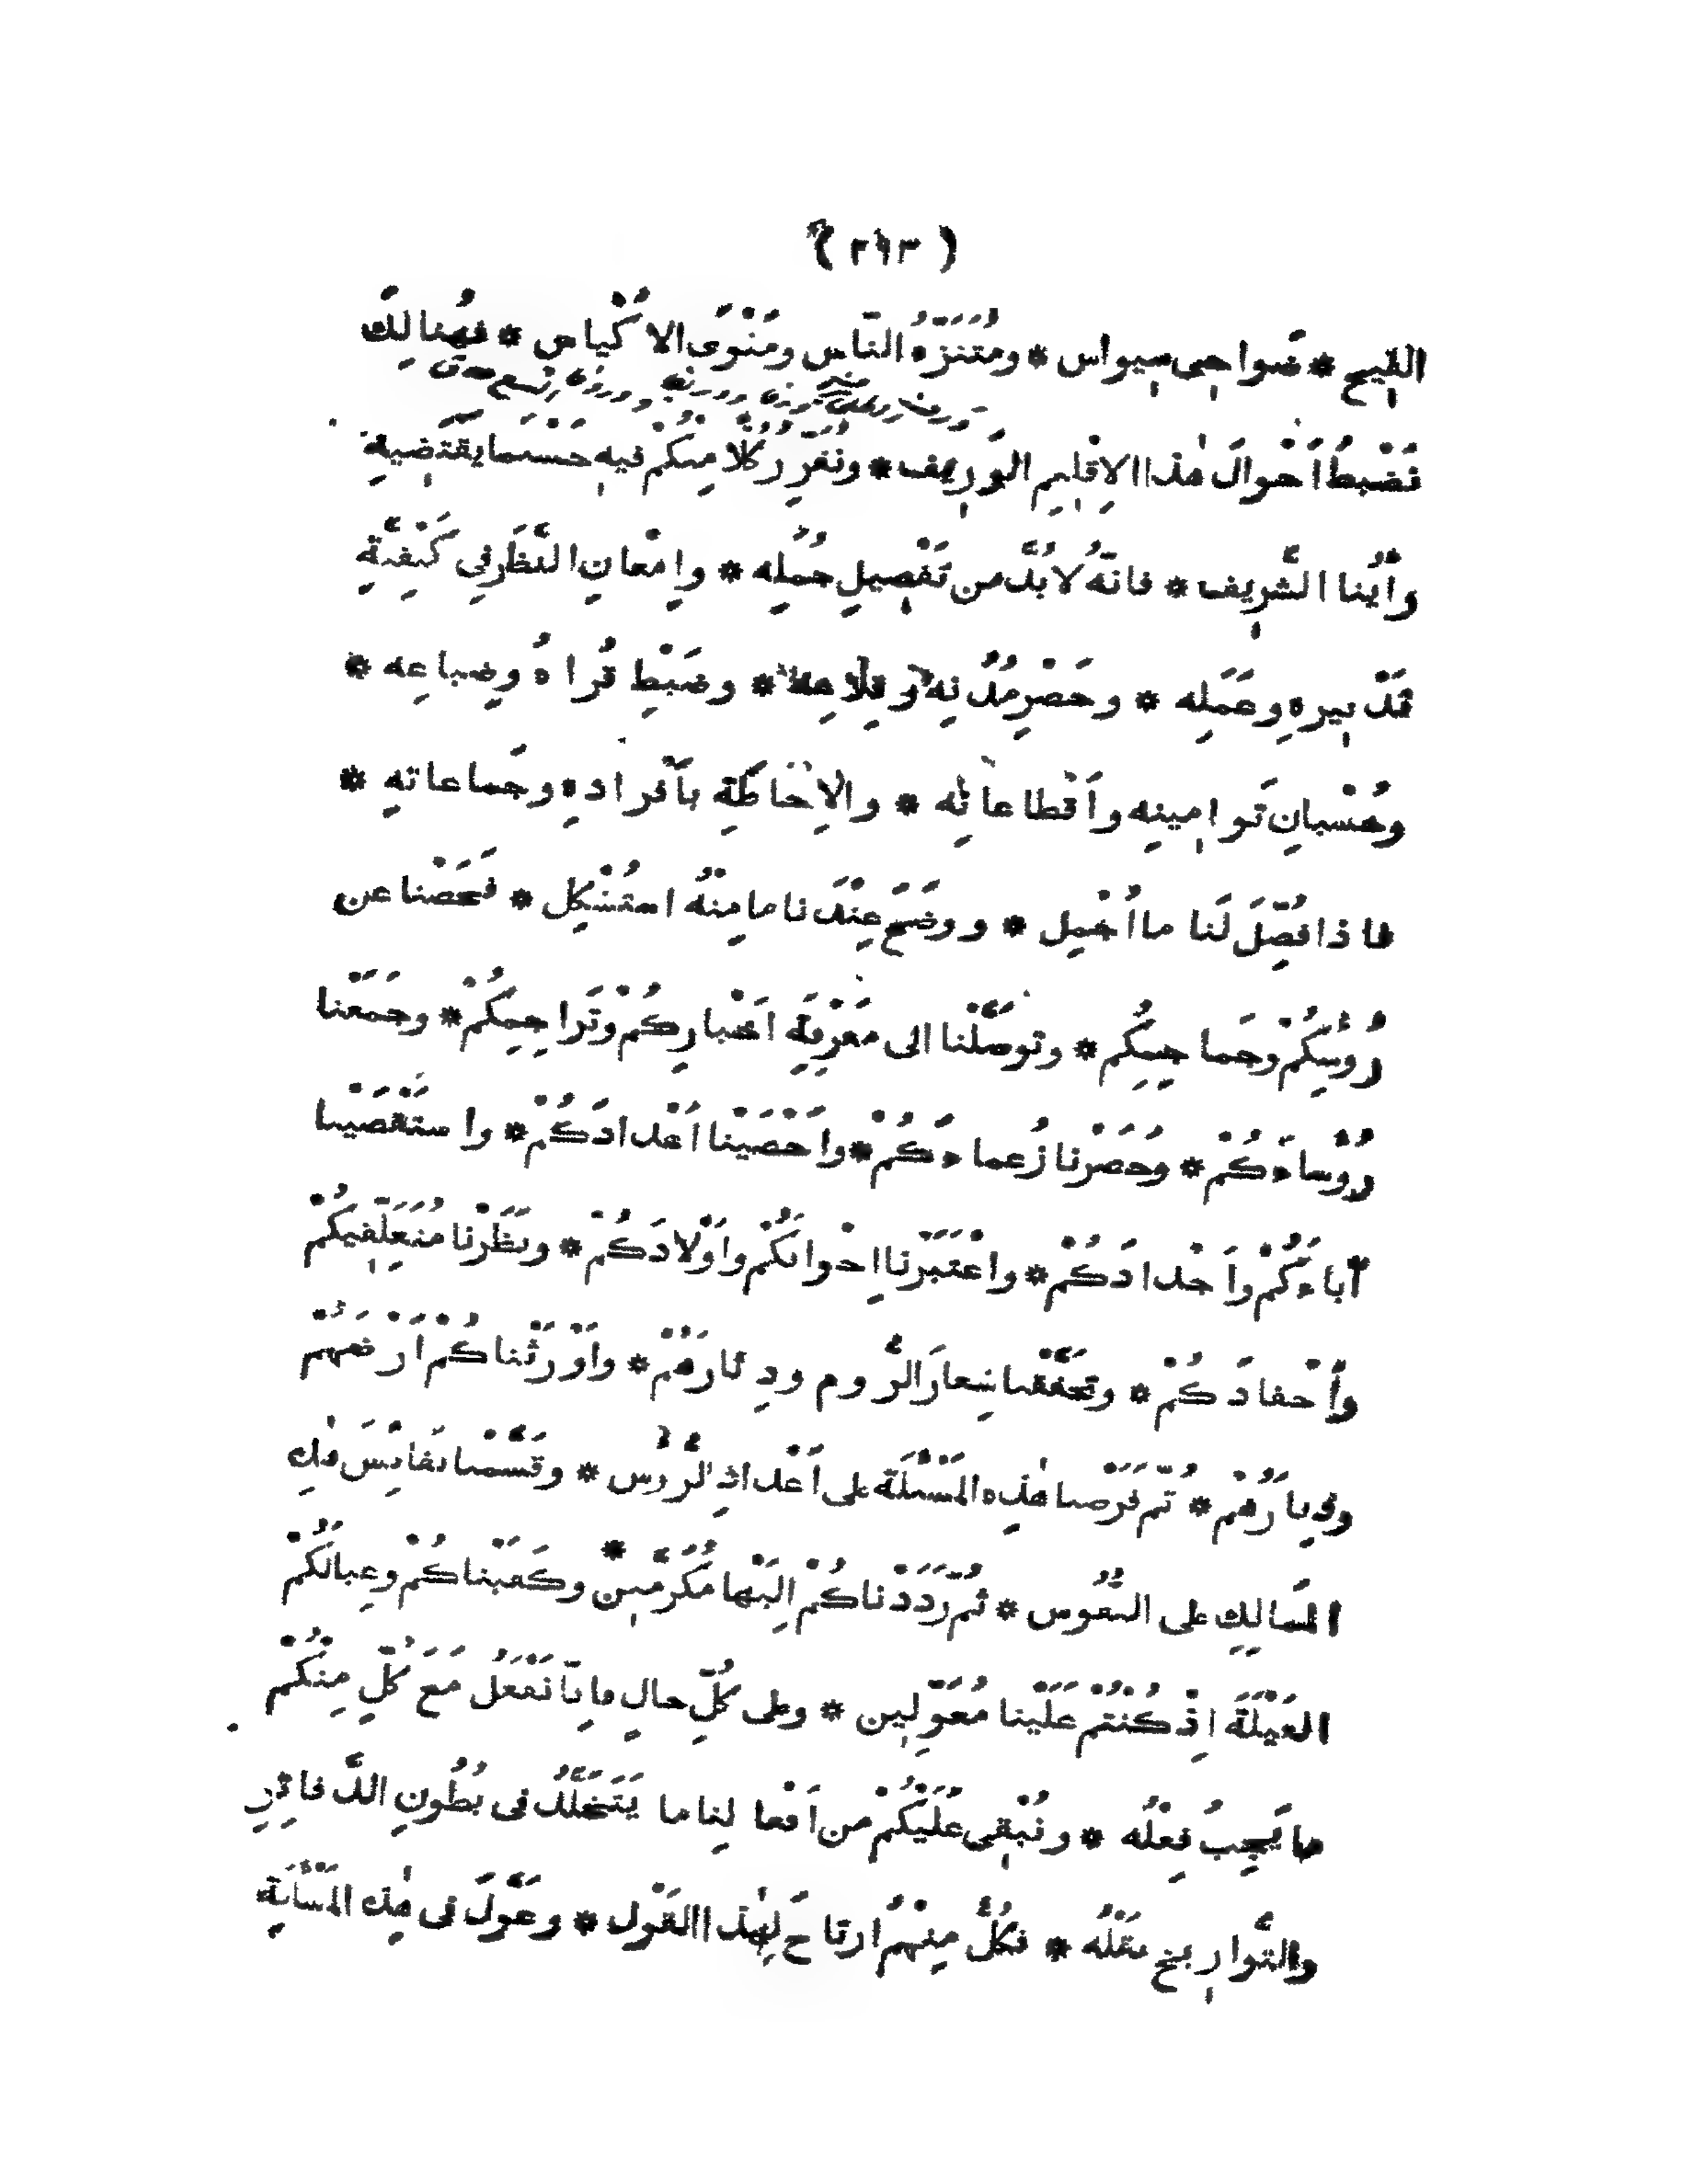 ( ٢٩٣ )
الفِيحِ * ضَواحِى سِيواس * ومُتَنَزَّهُ النّاسِ ومَثْوَى الاَكْياسِ * فهُنالِكَ
نَضْبِطُ اَحْوالَ هٰذا الاِقْلِيمِ الوَرِيف * ونُقَرِّرُ كُلًّا مِنكُم فيه حَسْبَما يقْتَضِيهِ
رأيُنا الشَّرِيف * فانّهُ لابُدَّ من تَفْصِيلِ جُمَلِه * وإمْعانِ النَّظَرِ فِى كَيْفِيَّةِ
تَدْبِيرِهِ وعَمَلِه * وحَصْرِ مُدُنِه وقِلاعِه * وضَبْطِ قُراهُ وضِياعِه *
وحُسْبانِ تَوامِينِه واَقْطاعاتِه * والاِحَاطَةِ بأَفْرادِهِ وجَماعاتِهِ *
فاذا فُصِّلَ لَنا ما اُجْمِل * ووضَحَ عِنْدَنا ما مِنْهُ اسْتُشْكِل * فَحَصْنا عن
رُوسِكُمْ وجَماجِمِكُم * وتوصَّلْنا الى مَعْرِفَةِ اَخْبارِكُم وتَراجِمِكُمْ * وجَمَعْنا
رُؤَساءَكُمْ * وحَصَرْنا زُعماءَكُمْ * واَحْصَيْنا اَعْدادَكُمْ * واسْتَقْصَيْنا
آباءَكُمْ واَجْدادَكُمْ * واعْتَبَرْنا اِخْوانَكُم واَوْلادَكُمْ * ونَظَرْنا مُتَعَلِّقِيكُمْ
واَحْفادَكُمْ * وتَحَقَّقْنا شِعارَ الرُّومِ ودِثارَهُمْ * واَوْرَثْناكُمْ اَرْضَهُمْ
ودِيارَهُمْ * ثمّ فَرَضْنا هٰذِه المَسْئَلَةَ على اَعْدادِ الرُّؤُس * وقَسَّمْنا نَفائِسَ تِلك
المَسالِكِ على النُّفُوس * ثُمّ رَدَدْناكُمْ اِلَيْها مُكَرَّمِين * وكَفَيْناكُمْ وعِيالَكُمْ
العَيْلَةَ اِذْ كُنْتُمْ عَلَيْنا مُعَوِّلِين * وعلى كُلِّ حالٍ فاِنّا نَفْعَلُ مَعَ كُلٍّ مِنْكُمْ
ما يَجِبُ فِعْلُه * ونُبْقِى عَلَيْكُمْ من اَفْعالِنا ما يَتَخَلَّدُ فى بُطُونِ الدَّفاتِرِ
والتَّوارِيخِ نقْلُه * فكُلٌّ مِنْهُم ارتاحَ لِهٰذا القَوْل * وعَوَّلَ فى هٰذِه المَسْأَلَةِ